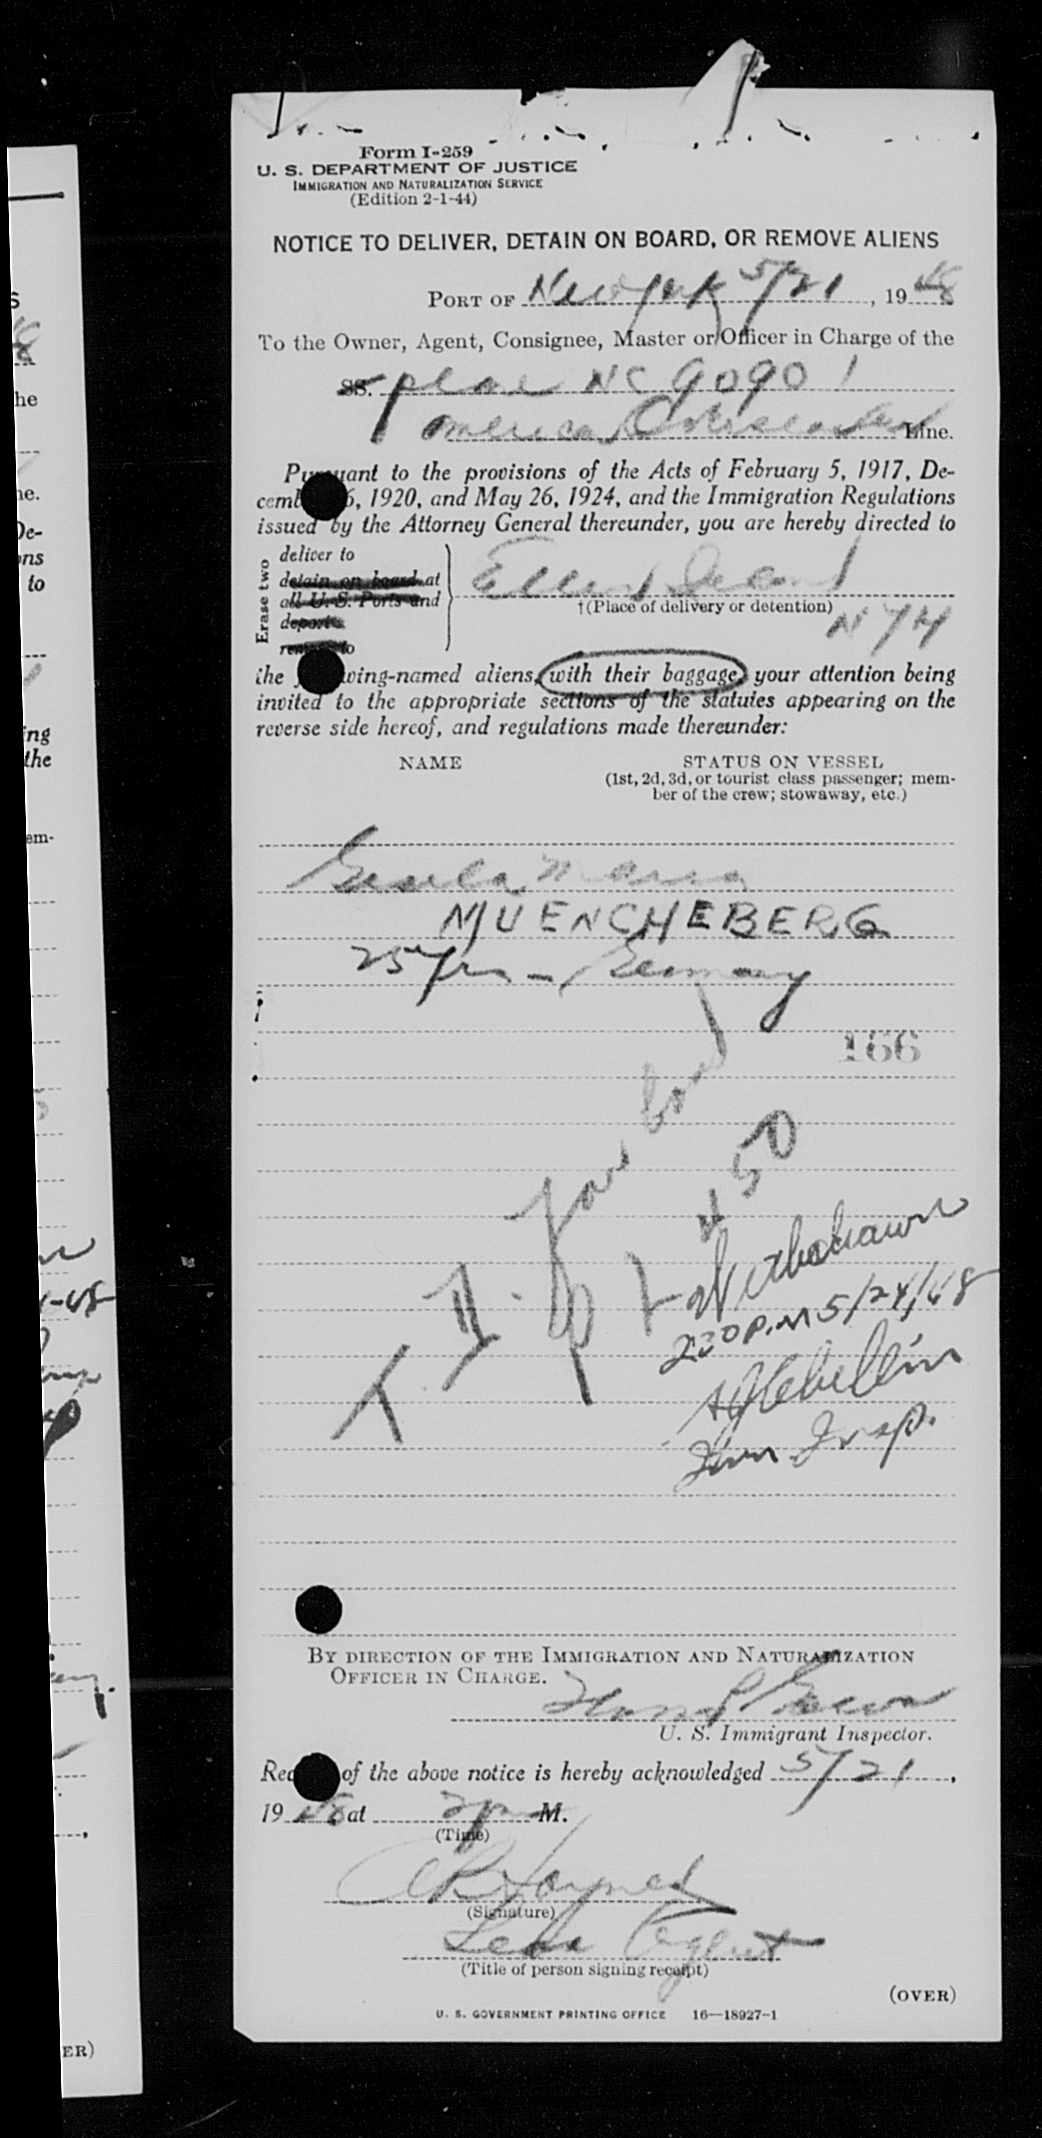 Form I-259
U. S. DEPARTMENT OF JUSTICE
IMMIGRATION AND NATURALIZATION SERVICE
(Edition 2-1-44)
NOTICE TO DELIVER, DETAIN ON BOARD, OR REMOVE ALIENS
PORT OF New York 5/21, 1948
To the Owner, Agent, Consignee, Master or Officer in Charge of the
SS. plane NC 90901
American Overseas Line.
Pursuant to the provisions of the Acts of February 5, 1917, De-
cember 26, 1920, and May 26, 1924, and the Immigration Regulations
issued by the Attorney General thereunder, you are hereby directed to
Erase two
deliver to
detain on board at
all U. S. Ports and
deport
remove to
Ellis Island
†(Place of delivery or detention)
NYH
the following-named aliens, with their baggage, your attention being
invited to the appropriate sections of the statutes appearing on the
reverse side hereof, and regulations made thereunder:
NAME
STATUS ON VESSEL
(1st, 2d, 3d, or tourist class passenger; mem-
ber of the crew; stowaway, etc.)
Gisela Maria
MUENCHEBERG
25 yrs - Germany
166
T. I. for bond
450
Withdrawn
230 P.M 5/24/48
Imm Insp.
BY DIRECTION OF THE IMMIGRATION AND NATURALIZATION
OFFICER IN CHARGE.
U. S. Immigrant Inspector.
Receipt of the above notice is hereby acknowledged 5/21,
1948 at 2 pm M.
(Time)
(Signature)
Agent
(Title of person signing receipt)
(OVER)
U. S. GOVERNMENT PRINTING OFFICE 16—18927-1